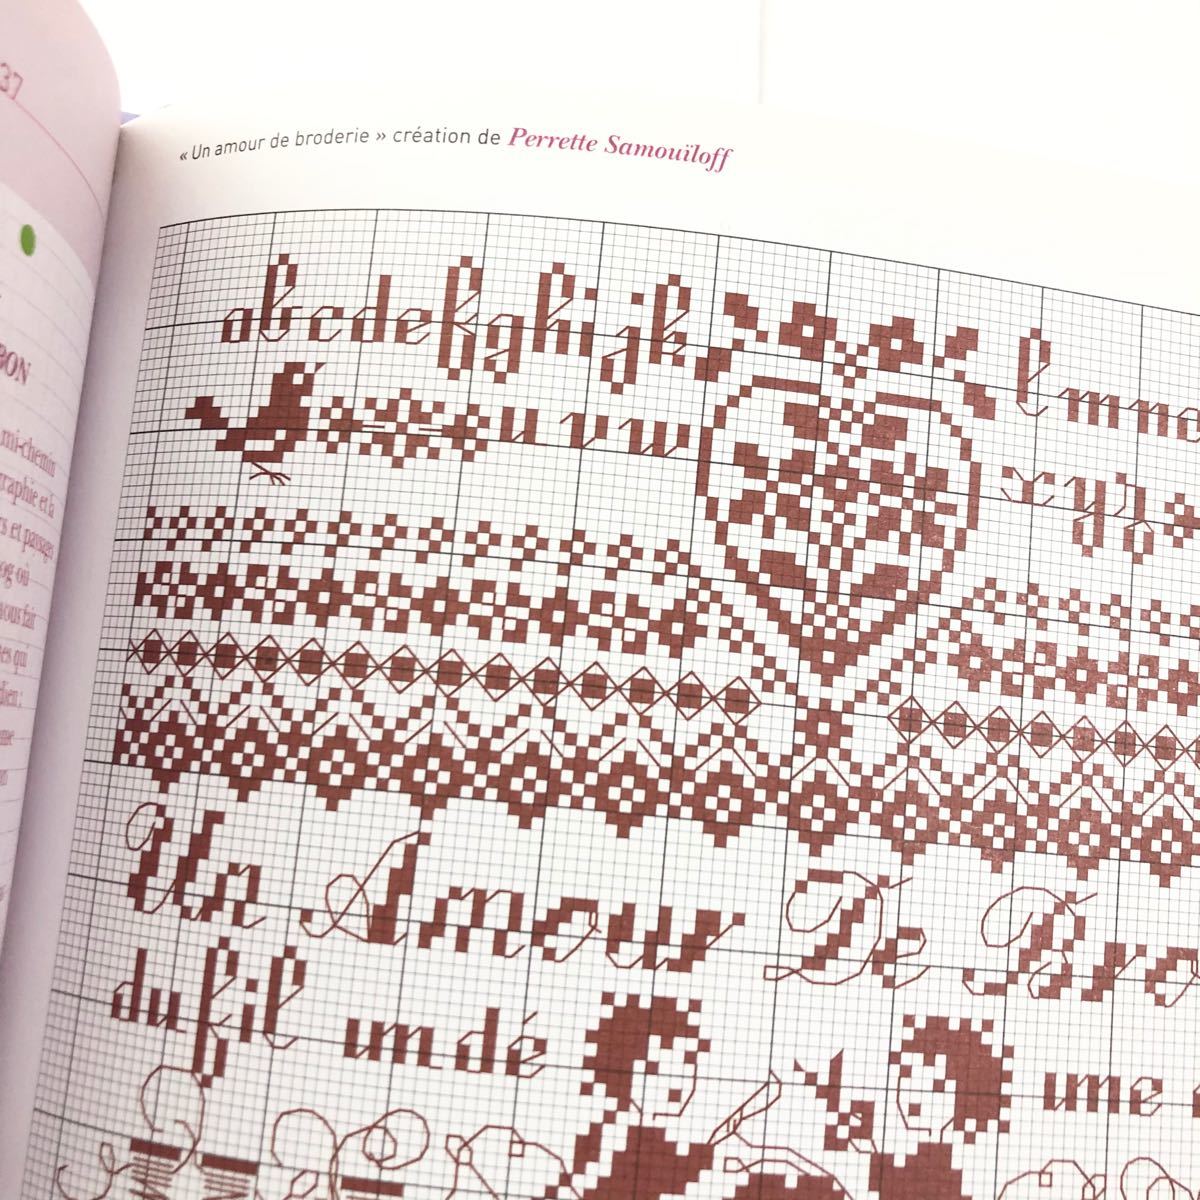 37
« Un amour de broderie » création de Perrette Samouïloff
abcdefghijk lmno
uvw xyz
Un Amour De Bro
du fil un dé une
BON
mi-chemin
raphie et la
rs et paysages
og où
vous fait
es qui
dien :